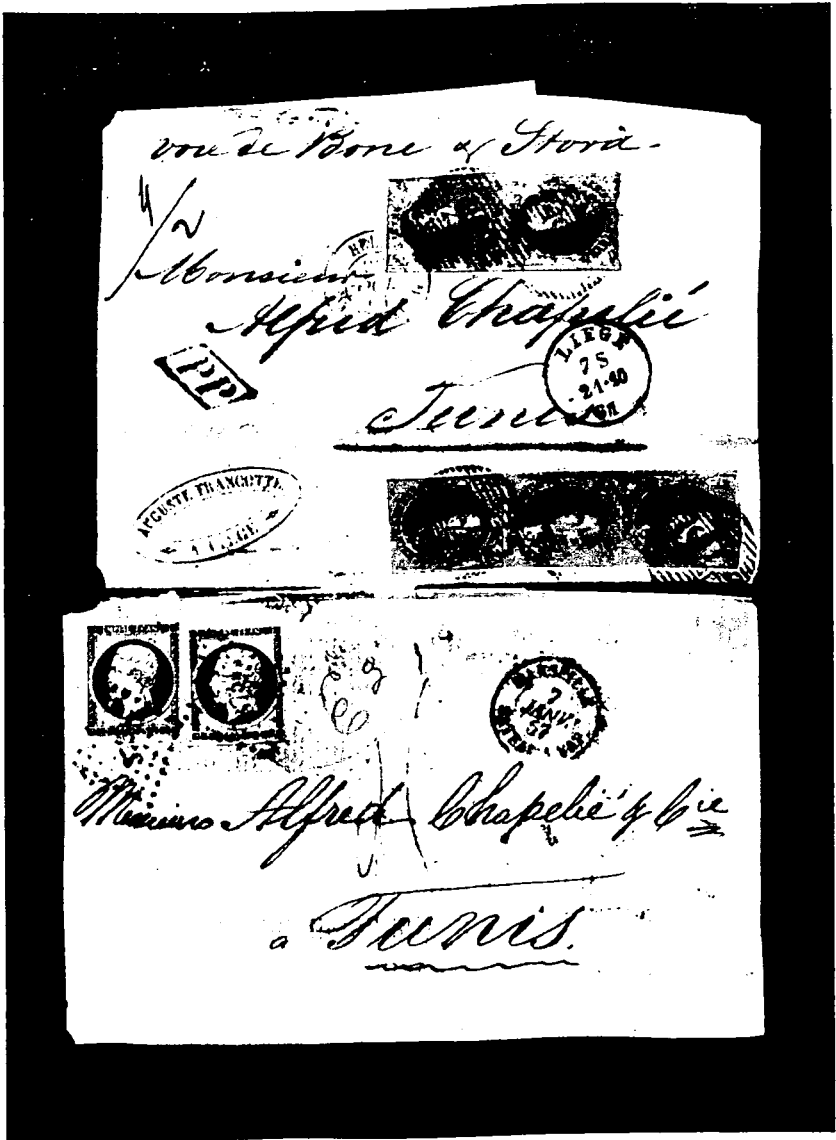 voie de Bone & Stora
4/2
Monsieur
Alfred Chapelié
PP
LIEGE
7 S
Tunis
AUGUSTE FRANCOTTE
A LIEGE
MARSEILLE
7
JANV.
57
Messieurs Alfred Chapelié & Cie
a Tunis.